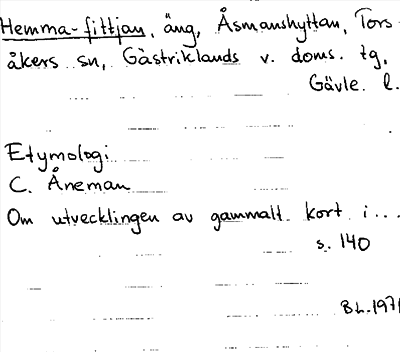 Hemma-fittjan, äng, Åsmanshyttan, Tors-
åkers sn, Gästriklands v. doms. tg,
Gävle. l.
Etymologi
C. Åneman
Om utvecklingen av gammalt kort i...
s. 140
BL. 1971